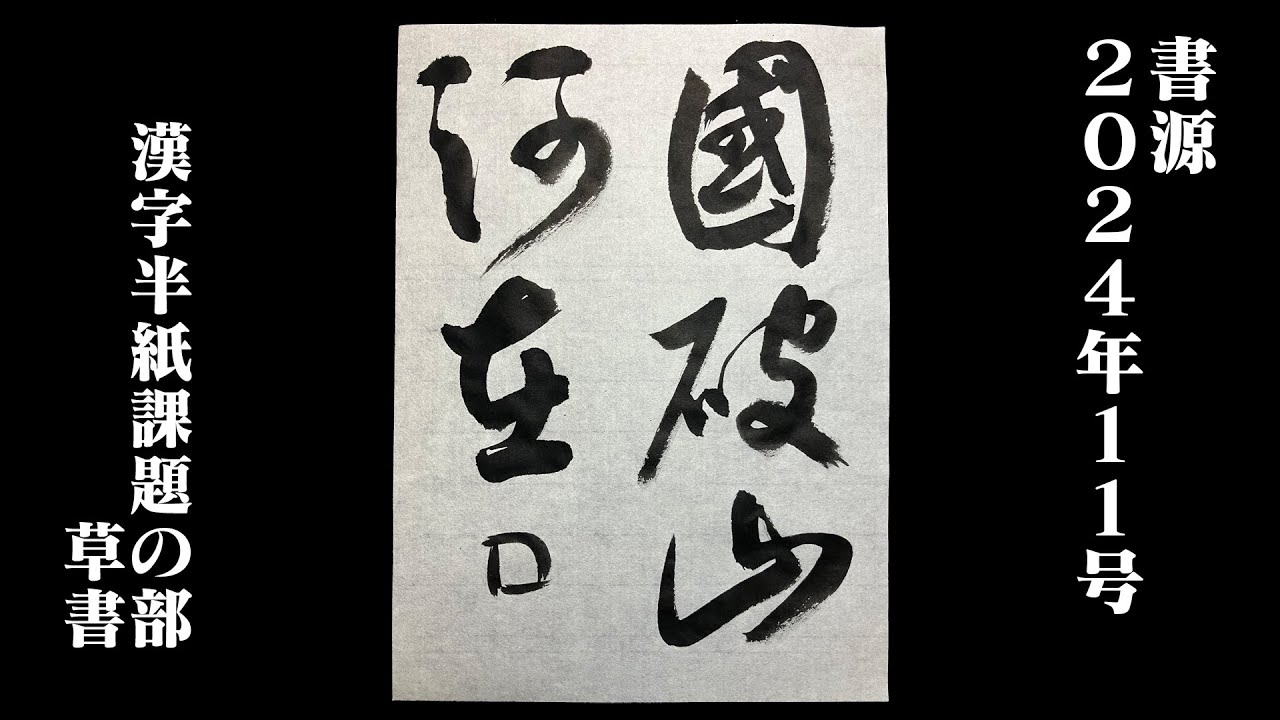 書源
２０２４年１１号
國破山
河在
漢字半紙課題の部
草書